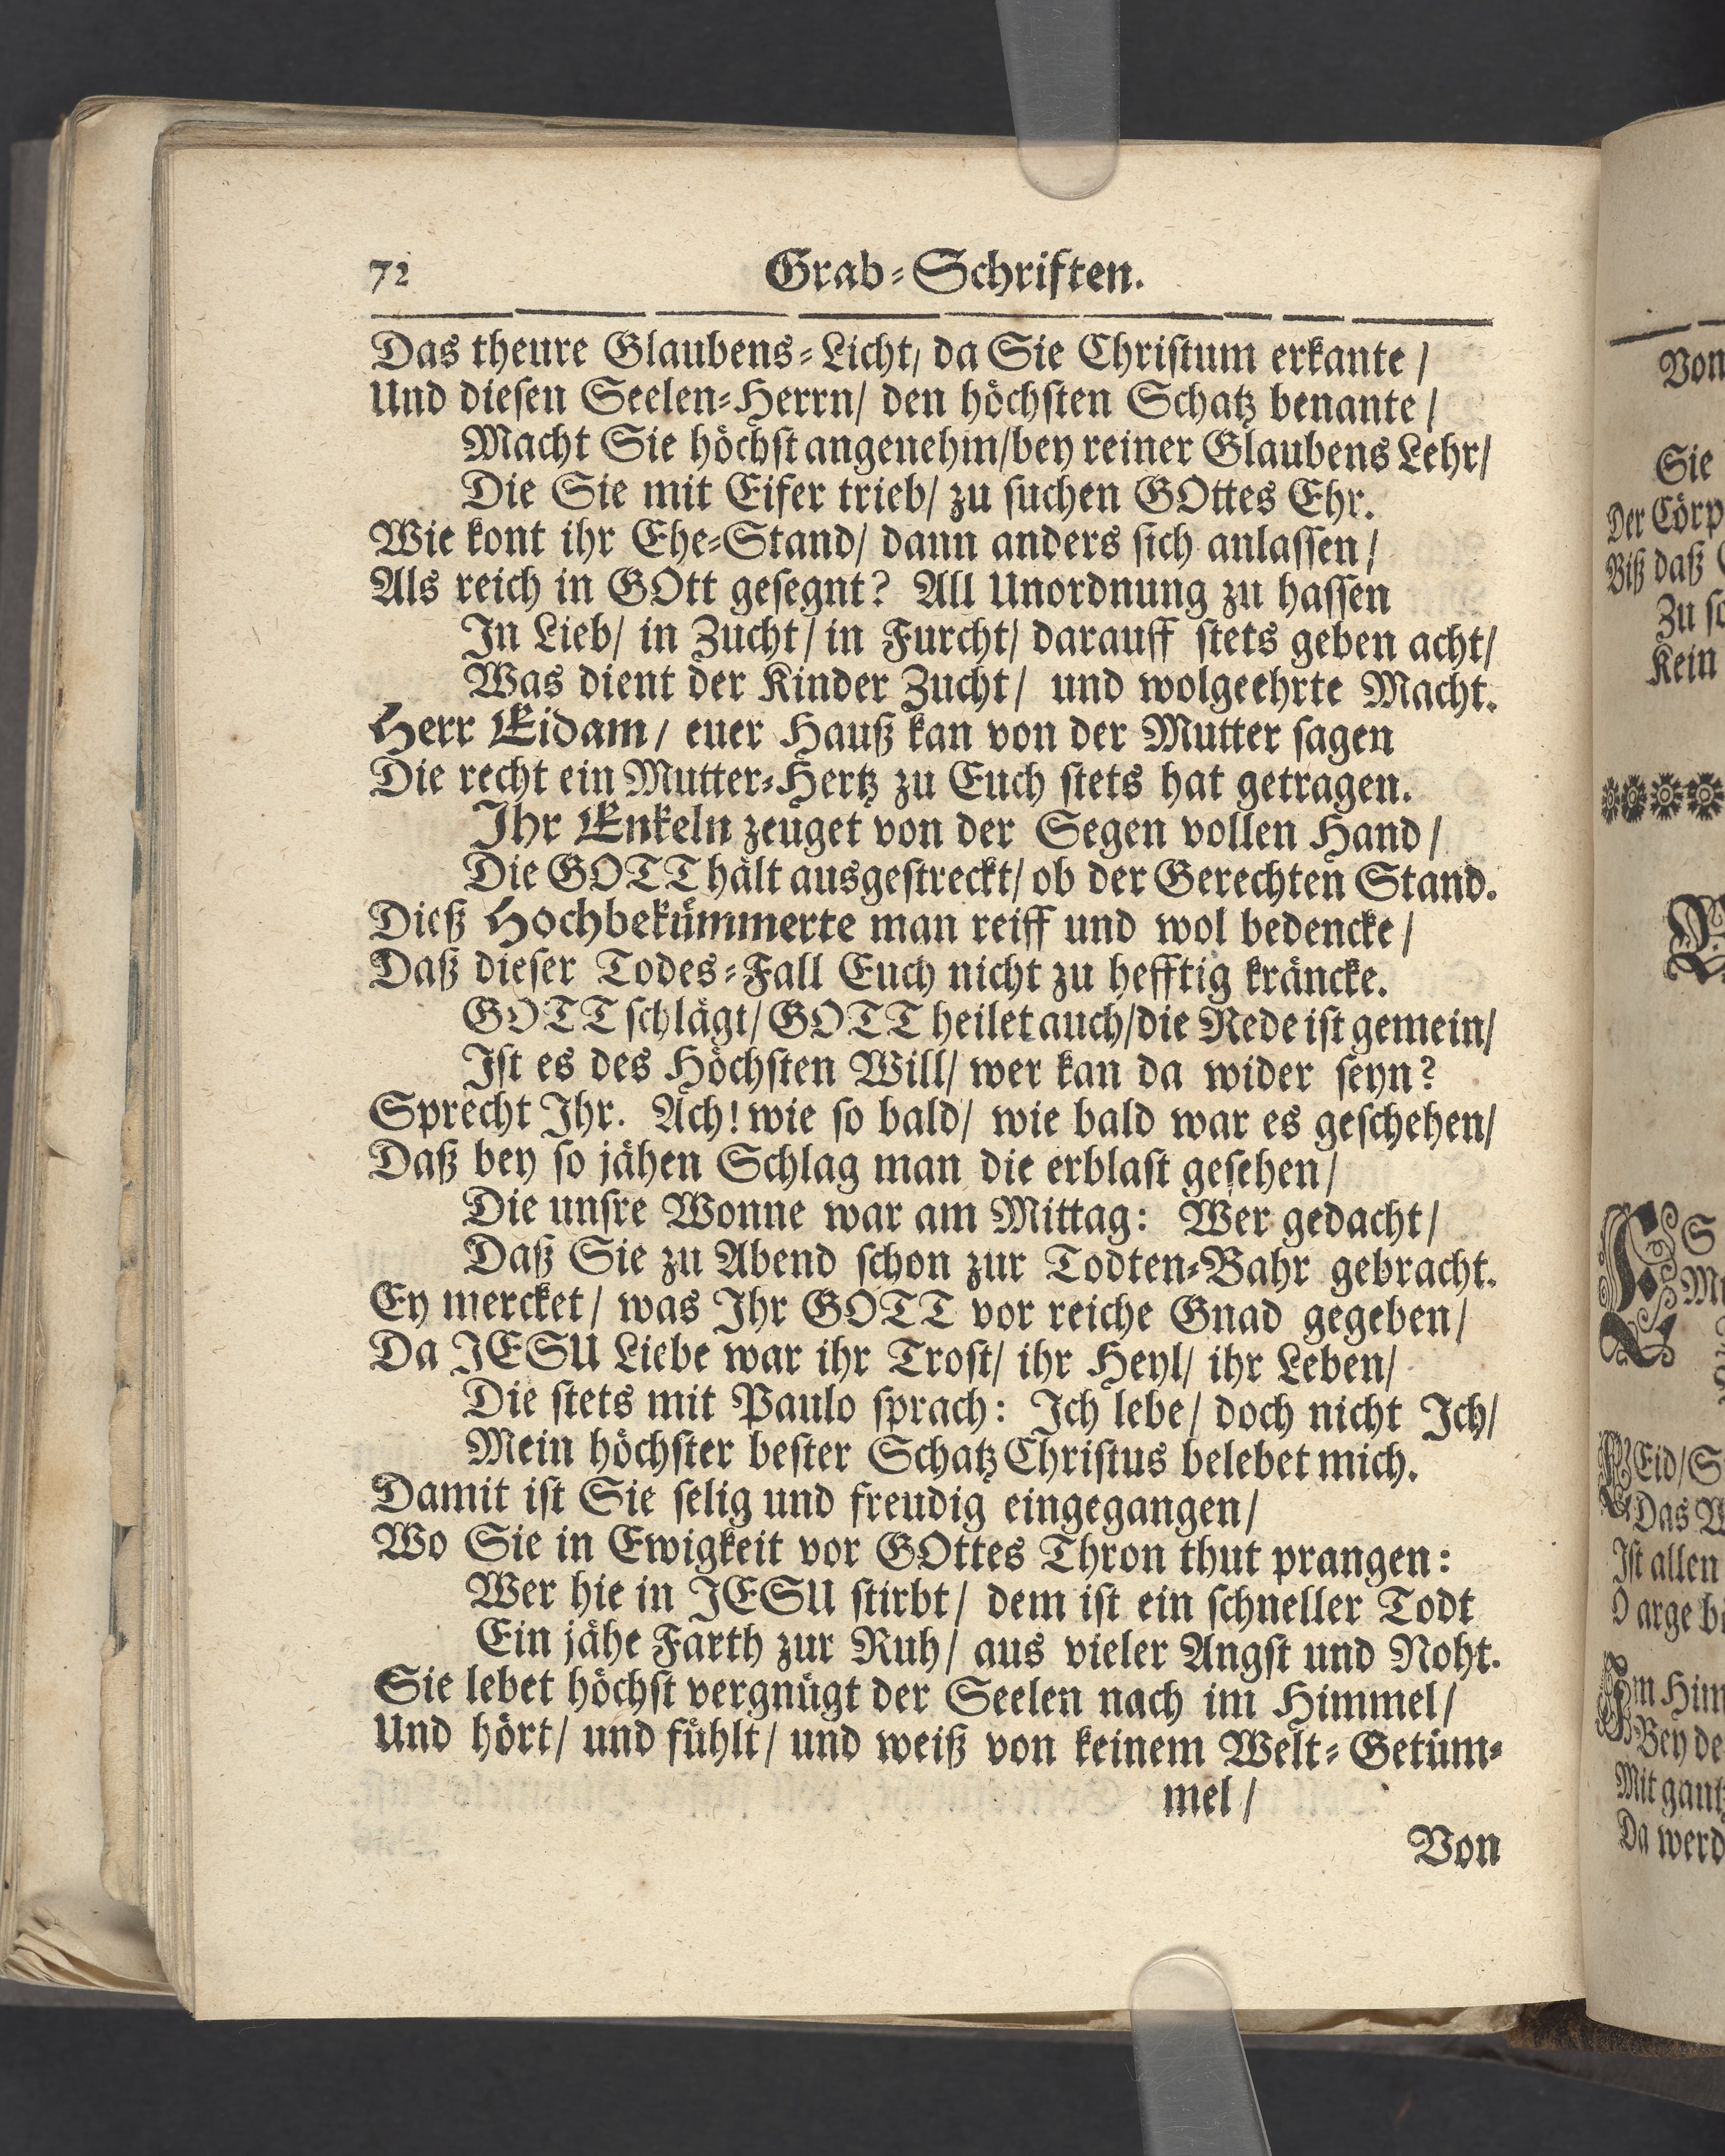 72 Grab-Schriften.
Das theure Glaubens-Licht, da Sie Chriſtum erkante /
Und dieſen Seelen-Herrn/ den höchſten Schatz benante /
Macht Sie höchſt angenehm/bey reiner Glaubens Lehr/
Die Sie mit Eifer trieb/ zu ſuchen GOttes Ehr.
Wie kont ihr Ehe-Stand/ dann anders ſich anlaſſen /
Als reich in GOtt geſegnt? All Unordnung zu haſſen
In Lieb/ in Zucht/ in Furcht/ darauff ſtets geben acht/
Was dient der Kinder Zucht/ und wolgeehrte Macht.
Herr Eidam / euer Hauß kan von der Mutter ſagen
Die recht ein Mutter-Hertz zu Euch ſtets hat getragen.
Ihr Enkeln zeuget von der Segen vollen Hand /
Die GOTT hält ausgeſtreckt/ ob der Gerechten Stand.
Dieß Hochbekümmerte man reiff und wol bedencke /
Daß dieſer Todes-Fall Euch nicht zu hefftig kräncke.
GOTT ſchlägt/ GOTT heilet auch/die Rede iſt gemein/
Iſt es des Höchſten Will/ wer kan da wider ſeyn?
Sprecht Ihr. Ach! wie ſo bald/ wie bald war es geſchehen/
Daß bey ſo jähen Schlag man die erblaſt geſehen/
Die unſre Wonne war am Mittag: Wer gedacht/
Daß Sie zu Abend ſchon zur Todten-Bahr gebracht.
Ey mercket / was Ihr GOTT vor reiche Gnad gegeben/
Da JESU Liebe war ihr Troſt/ ihr Heyl/ ihr Leben/
Die ſtets mit Paulo ſprach: Ich lebe/ doch nicht Ich/
Mein höchſter beſter Schatz Chriſtus belebet mich.
Damit iſt Sie ſelig und freudig eingegangen/
Wo Sie in Ewigkeit vor GOttes Thron thut prangen:
Wer hie in JESU ſtirbt/ dem iſt ein ſchneller Todt
Ein jähe Farth zur Ruh/ aus vieler Angſt und Noht.
Sie lebet höchſt vergnügt der Seelen nach im Himmel/
Und hört/ und fühlt/ und weiß von keinem Welt-Getüm-
mel /
Von
Von
Sie
Der
Biß daß
Zu
Kein
Das
Iſt allen
O arge
Bey
Mit
Da